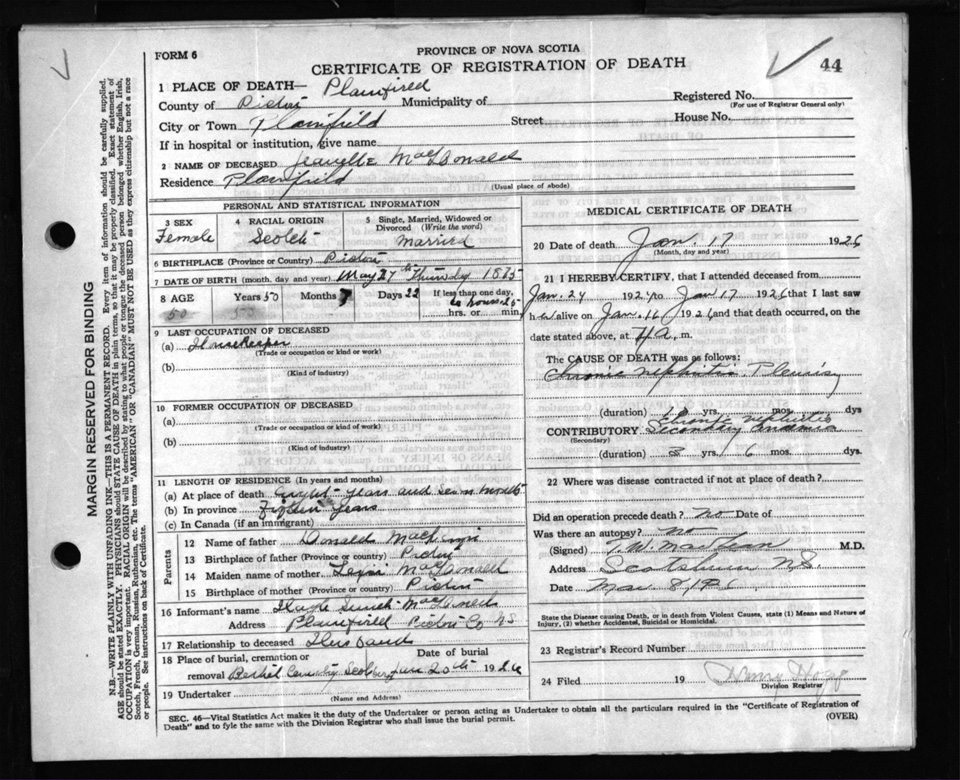 PROVINCE OF NOVA SCOTIA
FORM 6
CERTIFICATE OF REGISTRATION OF DEATH
44
1 PLACE OF DEATH— Plainfired
County of Pictou Municipality of
Registered No.
(For use of Registrar General only)
City or Town Plainfield Street House No.
If in hospital or institution, give name
2 NAME OF DECEASED MacDonald
Residence Plainfield (Usual place of abode)
PERSONAL AND STATISTICAL INFORMATION
3 SEX
Female
4 RACIAL ORIGIN
Scotch
5 Single, Married, Widowed or
Divorced (Write the word)
Married
6 BIRTHPLACE (Province or Country) Pictou
7 DATE OF BIRTH (month, day and year) May 27th Thursday 1875
8 AGE
50
Years 50
Months 7
Days 22
If less than one day,
hrs. or min.
9 LAST OCCUPATION OF DECEASED
(a) Housekeeper
(Trade or occupation or kind or work)
(b)
(Kind of industry)
10 FORMER OCCUPATION OF DECEASED
(a)
(Trade or occupation or kind of work)
(b)
(Kind of industry)
11 LENGTH OF RESIDENCE (In years and months)
(a) At place of death years and months
(b) In province years
(c) In Canada (if an immigrant)
Parents
12 Name of father Donald
13 Birthplace of father (Province or country) Pictou
14 Maiden name of mother
15 Birthplace of mother (Province or country) Pictou
16 Informant's name
Address Plainfield Pictou Co NS
17 Relationship to deceased Husband
18 Place of burial, cremation or
removal Bethel Cemetery
Date of burial
20th 1926
19 Undertaker
(Name and Address)
MEDICAL CERTIFICATE OF DEATH
20 Date of death Jan. 17 1926
(Month, day and year)
21 I HEREBY CERTIFY, that I attended deceased from
Jan. 24 192 to Jan 17 1926 that I last saw
her alive on Jan. 16 1926 and that death occurred, on
date stated above, at m.
The CAUSE OF DEATH was as follows:
Chronic nephritis Pleurisy
(duration) yrs. mos. dys
Chronic nephritis
CONTRIBUTORY Secondary
(Secondary)
(duration) 8 yrs. 6 mos. dys
22 Where was disease contracted if not at place of death?
Did an operation precede death? no Date of
Was there an autopsy? no
(Signed) M.D.
Address Scotsburn N.S.
Date
State the Disease causing Death, or in death from Violent Causes, state (1) Means and Nature of
Injury, (2) whether Accidental, Suicidal or Homicidal.
23 Registrar's Record Number
24 Filed 19 Henry
Division Registrar
SEC. 46—Vital Statistics Act makes it the duty of the Undertaker or person acting as Undertaker to obtain all the particulars required in the "Certificate of Registration of
Death" and to fyle the same with the Division Registrar who shall issue the burial permit.
(OVER)
MARGIN RESERVED FOR BINDING
N.B.—WRITE PLAINLY WITH UNFADING INK—THIS IS A PERMANENT RECORD. Every item of information should be carefully supplied.
AGE should be stated EXACTLY. PHYSICIANS should STATE CAUSE OF DEATH in plain terms, so that it may be properly classified. Exact statement of
OCCUPATION is very important. RACIAL ORIGIN will be described by stating to what people or tongue the deceased person belonged whether English, Irish,
Scotch, French, German, Russian, Ruthenian, etc. The terms "AMERICAN" OR "CANADIAN" MUST NOT BE USED as they express citizenship but not a race
or people. See instructions on back of Certificate.